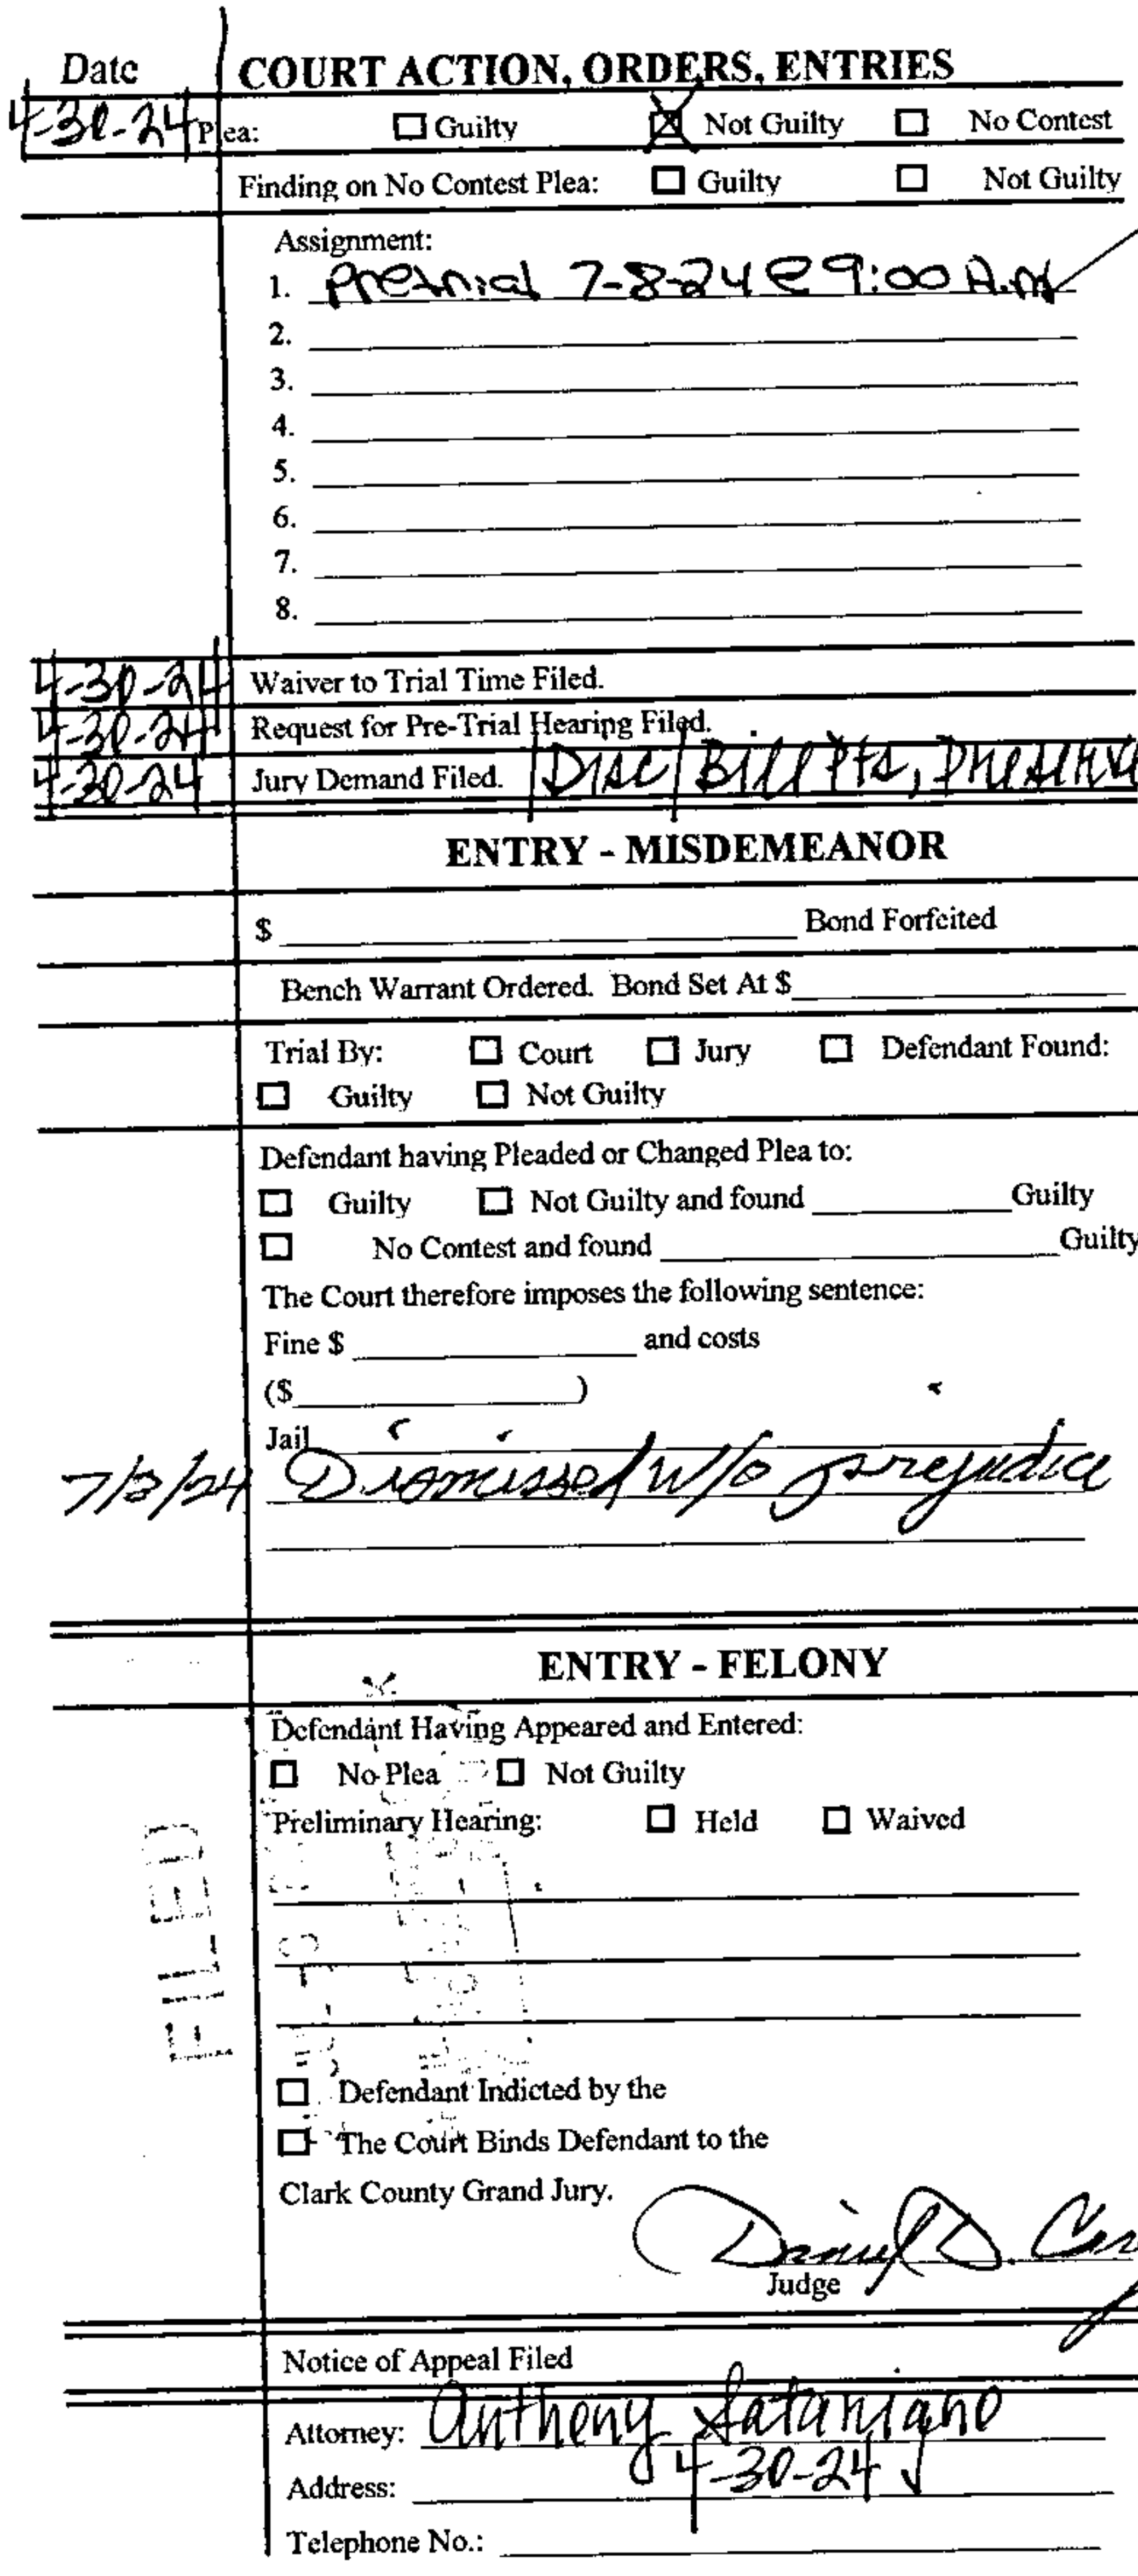 Date COURT ACTION, ORDERS, ENTRIES
4-30-24 Plea: ☐ Guilty ☒ Not Guilty ☐ No Contest
Finding on No Contest Plea: ☐ Guilty ☐ Not Guilty
Assignment:
1. Pretrial 7-8-24 @ 9:00 A.M
2.
3.
4.
5.
6.
7.
8.
4-30-24 Waiver to Trial Time Filed.
4-30-24 Request for Pre-Trial Hearing Filed.
4-30-24 Jury Demand Filed. Disc/Bill Pts, Preserve
ENTRY - MISDEMEANOR
$ Bond Forfeited
Bench Warrant Ordered. Bond Set At $
Trial By: ☐ Court ☐ Jury ☐ Defendant Found:
☐ Guilty ☐ Not Guilty
Defendant having Pleaded or Changed Plea to:
☐ Guilty ☐ Not Guilty and found Guilty
☐ No Contest and found Guilty
The Court therefore imposes the following sentence:
Fine $ and costs
($ )
Jail
7/3/24 Dismissed w/o prejudice
ENTRY - FELONY
Defendant Having Appeared and Entered:
☐ No Plea ☐ Not Guilty
Preliminary Hearing: ☐ Held ☐ Waived
FILED
☐ Defendant Indicted by the
☐ The Court Binds Defendant to the
Clark County Grand Jury.
Daniel D.
Judge
Notice of Appeal Filed
Attorney: Anthony
Address: 4-30-24
Telephone No.: